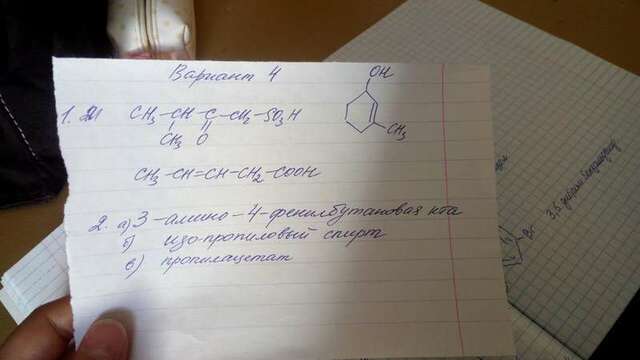 Вариант 4
OH
1. CH₃-CH-C-CH₂-SO₃H
CH₃ O
CH₃
CH₃-CH=CH-CH₂-COOH
2. а) 3-амино-4-фенилбутановая к-та
б) изо-пропиловый спирт
в) пропилацетат
Br